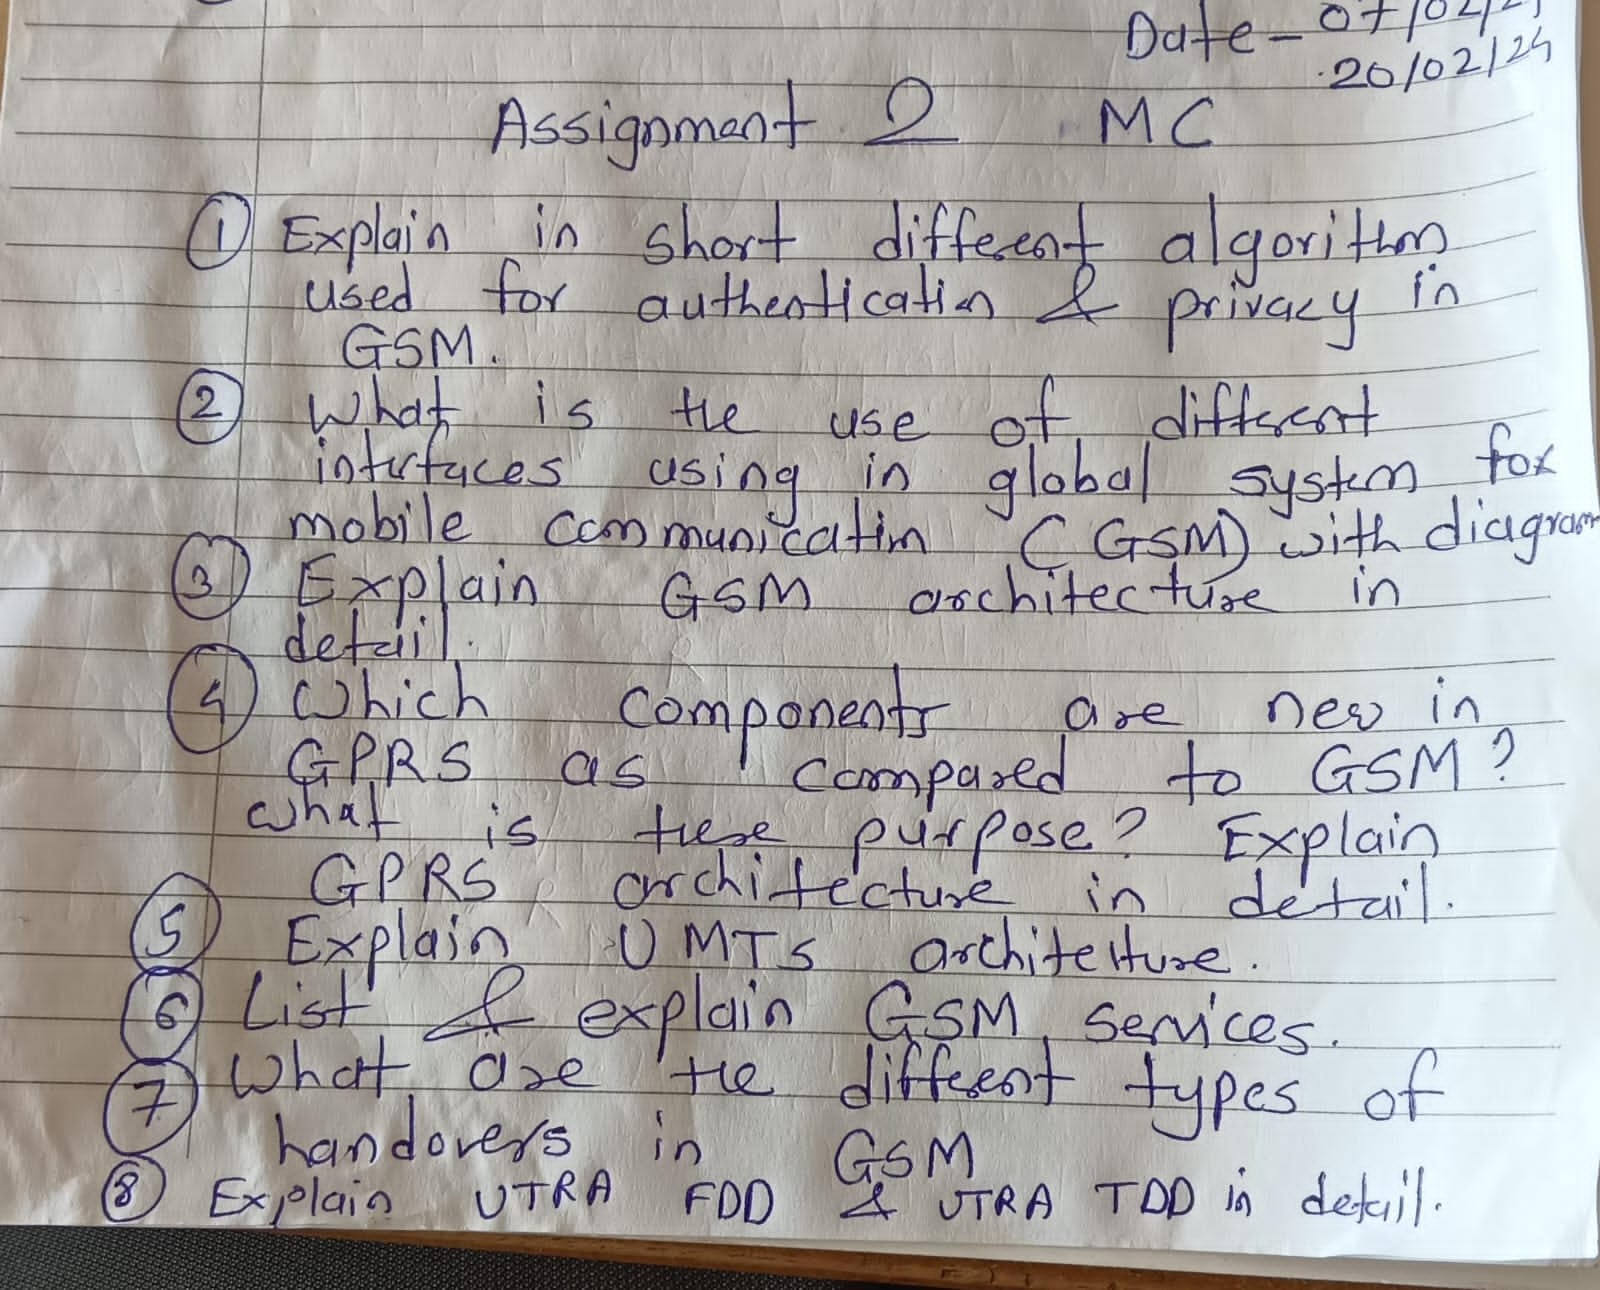 Date - 07/02/2
20/02/24
Assignment 2 MC
1 Explain in short different algorithm
used for authentication & privacy in
GSM.
2 What is the use of different
interfaces using in global system for
mobile communication (GSM) with diagram
3 Explain GSM architecture in
detail.
4 Which components are new in
GPRS as compared to GSM?
what is these purpose? Explain
GPRS architecture in detail.
5 Explain UMTS architecture.
6 List & explain GSM services.
7 What are the different types of
handovers in GSM
8 Explain UTRA FDD & UTRA TDD in detail.